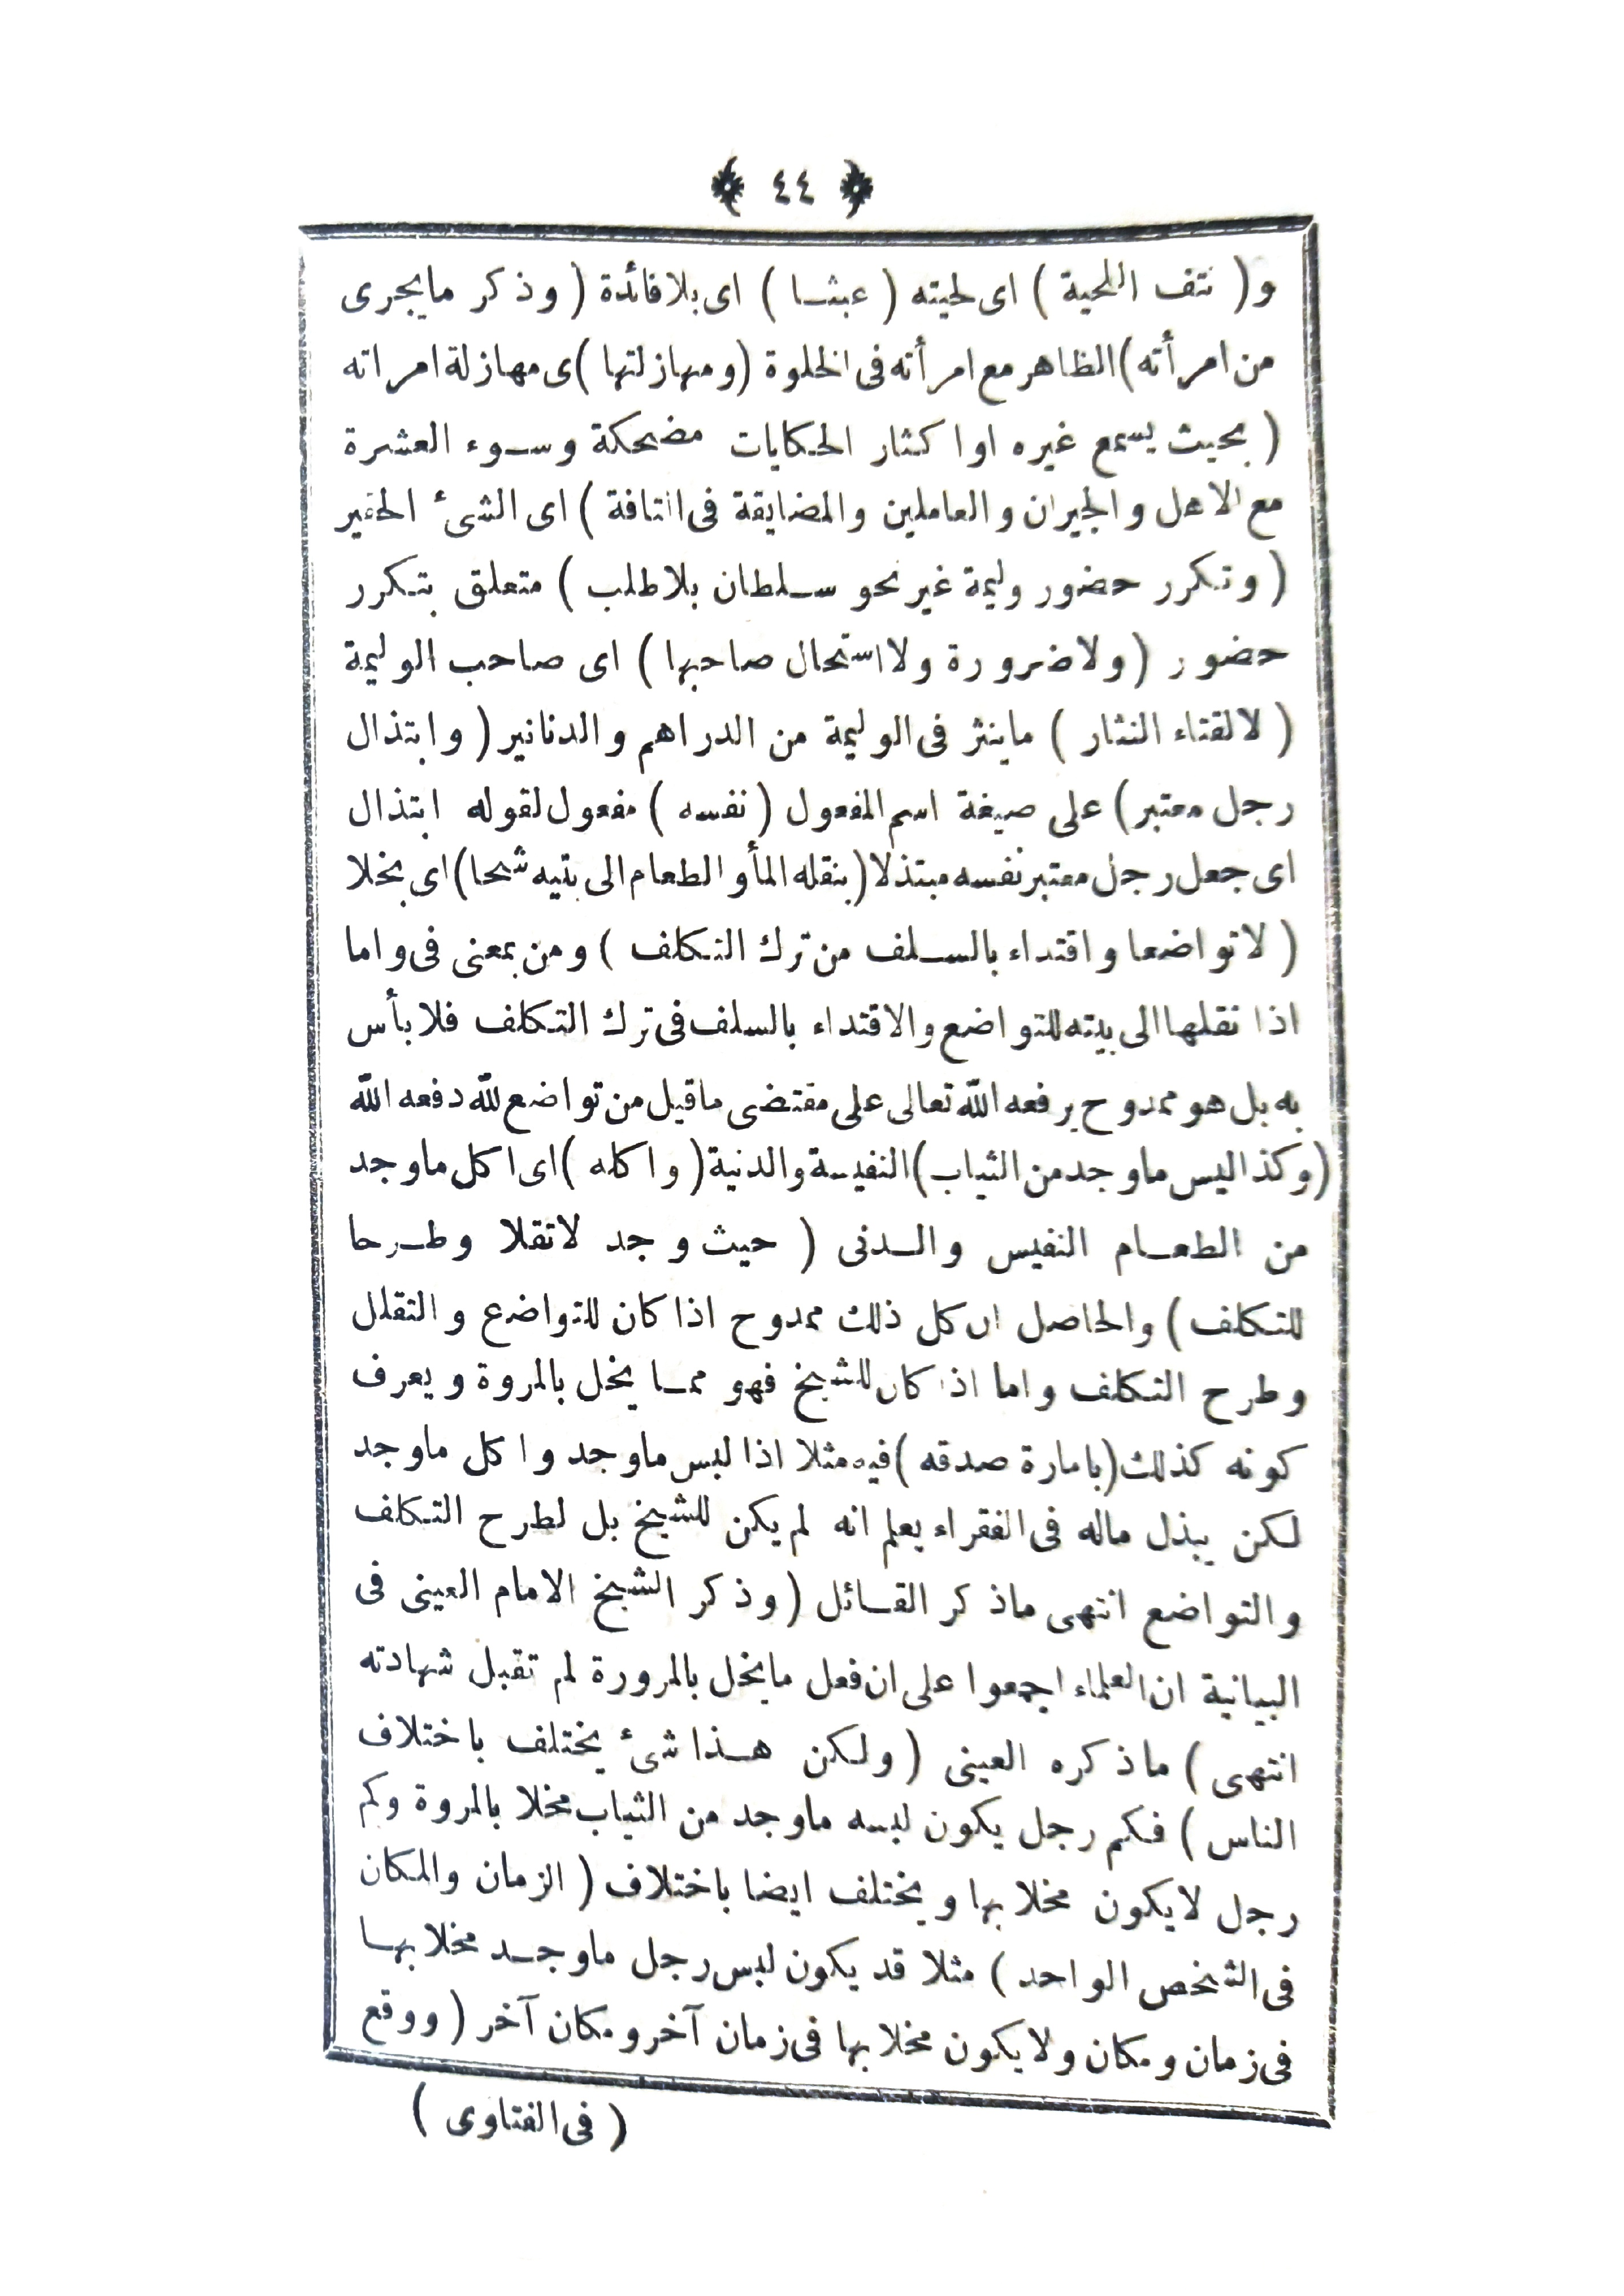 ٤٤
و( نتف اللحية ) اى لحيته ( عبثا ) اى بلا فائدة ( وذكر ما يجرى
من امرأته ) الظاهر مع امرأته فى الخلوة ( ومهازلتها ) ى مهازلة امراته
( بحيث يسمع غيره او اكثار الحكايات مضحكة وسوء العشرة
مع الاهل والجيران والعاملين والمضايقة فى التافة ) اى الشئ الحقير
( وتكرر حضور وليمة غير نحو سلطان بلا طلب ) متعلق بتكرر
حضور ( ولا ضرورة ولا استحال صاحبها ) اى صاحب الوليمة
( لالقتاء النثار ) ما ينثر فى الوليمة من الدراهم والدنانير ( وابتذال
رجل معتبر ) على صيغة اسم المفعول ( نفسه ) مفعول لقوله ابتذال
اى جعل رجل معتبر نفسه مبتذلا ( بنقله المأ و الطعام الى بتيه شحا ) اى بخلا
( لا تواضعا واقتداء بالسلف من ترك التكلف ) ومن بمعنى فى واما
اذا نقلها الى بيته للتواضع والاقتداء بالسلف فى ترك التكلف فلا بأس
به بل هو ممدوح يرفعه الله تعالى على مقتضى ما قيل من تواضع لله دفعه الله
( وكذا ليس ما وجد من الثياب ) النفيسة والدنية ( واكله ) اى اكل ما وجد
من الطعام النفيس والدنى ( حيث وجد لا تقلا وطرحا
للتكلف ) والحاصل ان كل ذلك ممدوح اذا كان للتواضع والتقلل
وطرح التكلف واما اذا كان للشيخ فهو مما يخل بالمروة ويعرف
كونه كذلك ( بامارة صدقه ) فيه مثلا اذا لبس ما وجد واكل ما وجد
لكن يبذل ماله فى الفقراء يعلم انه لم يكن للشيخ بل لطرح التكلف
والتواضع انتهى ما ذكر القائل ( وذكر الشيخ الامام العينى فى
البيانية ان العلماء اجمعوا على ان فعل ما يخل بالمرورة لم تقبل شهادته
انتهى ) ما ذكره العينى ( ولكن هذا شئ يختلف باختلاف
الناس ) فكم رجل يكون لبسه ما وجد من الثياب مخلا بالمروة وكم
رجل لا يكون مخلا بها ويختلف ايضا باختلاف ( الزمان والمكان
فى الشخص الواحد ) مثلا قد يكون لبس رجل ما وجد مخلا بها
فى زمان ومكان ولا يكون مخلا بها فى زمان آخر ومكان آخر ( ووقع
( فى الفتاوى )